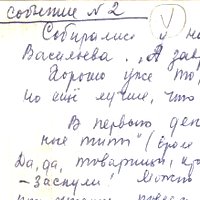 событие № 2
V
Собирались у на
Васильева. "А зав
Хорошо уже то,
но ещё лучше, что
В первого ден
ные тит" (
Да, да, товарищи, кро
- Заснули! Можно